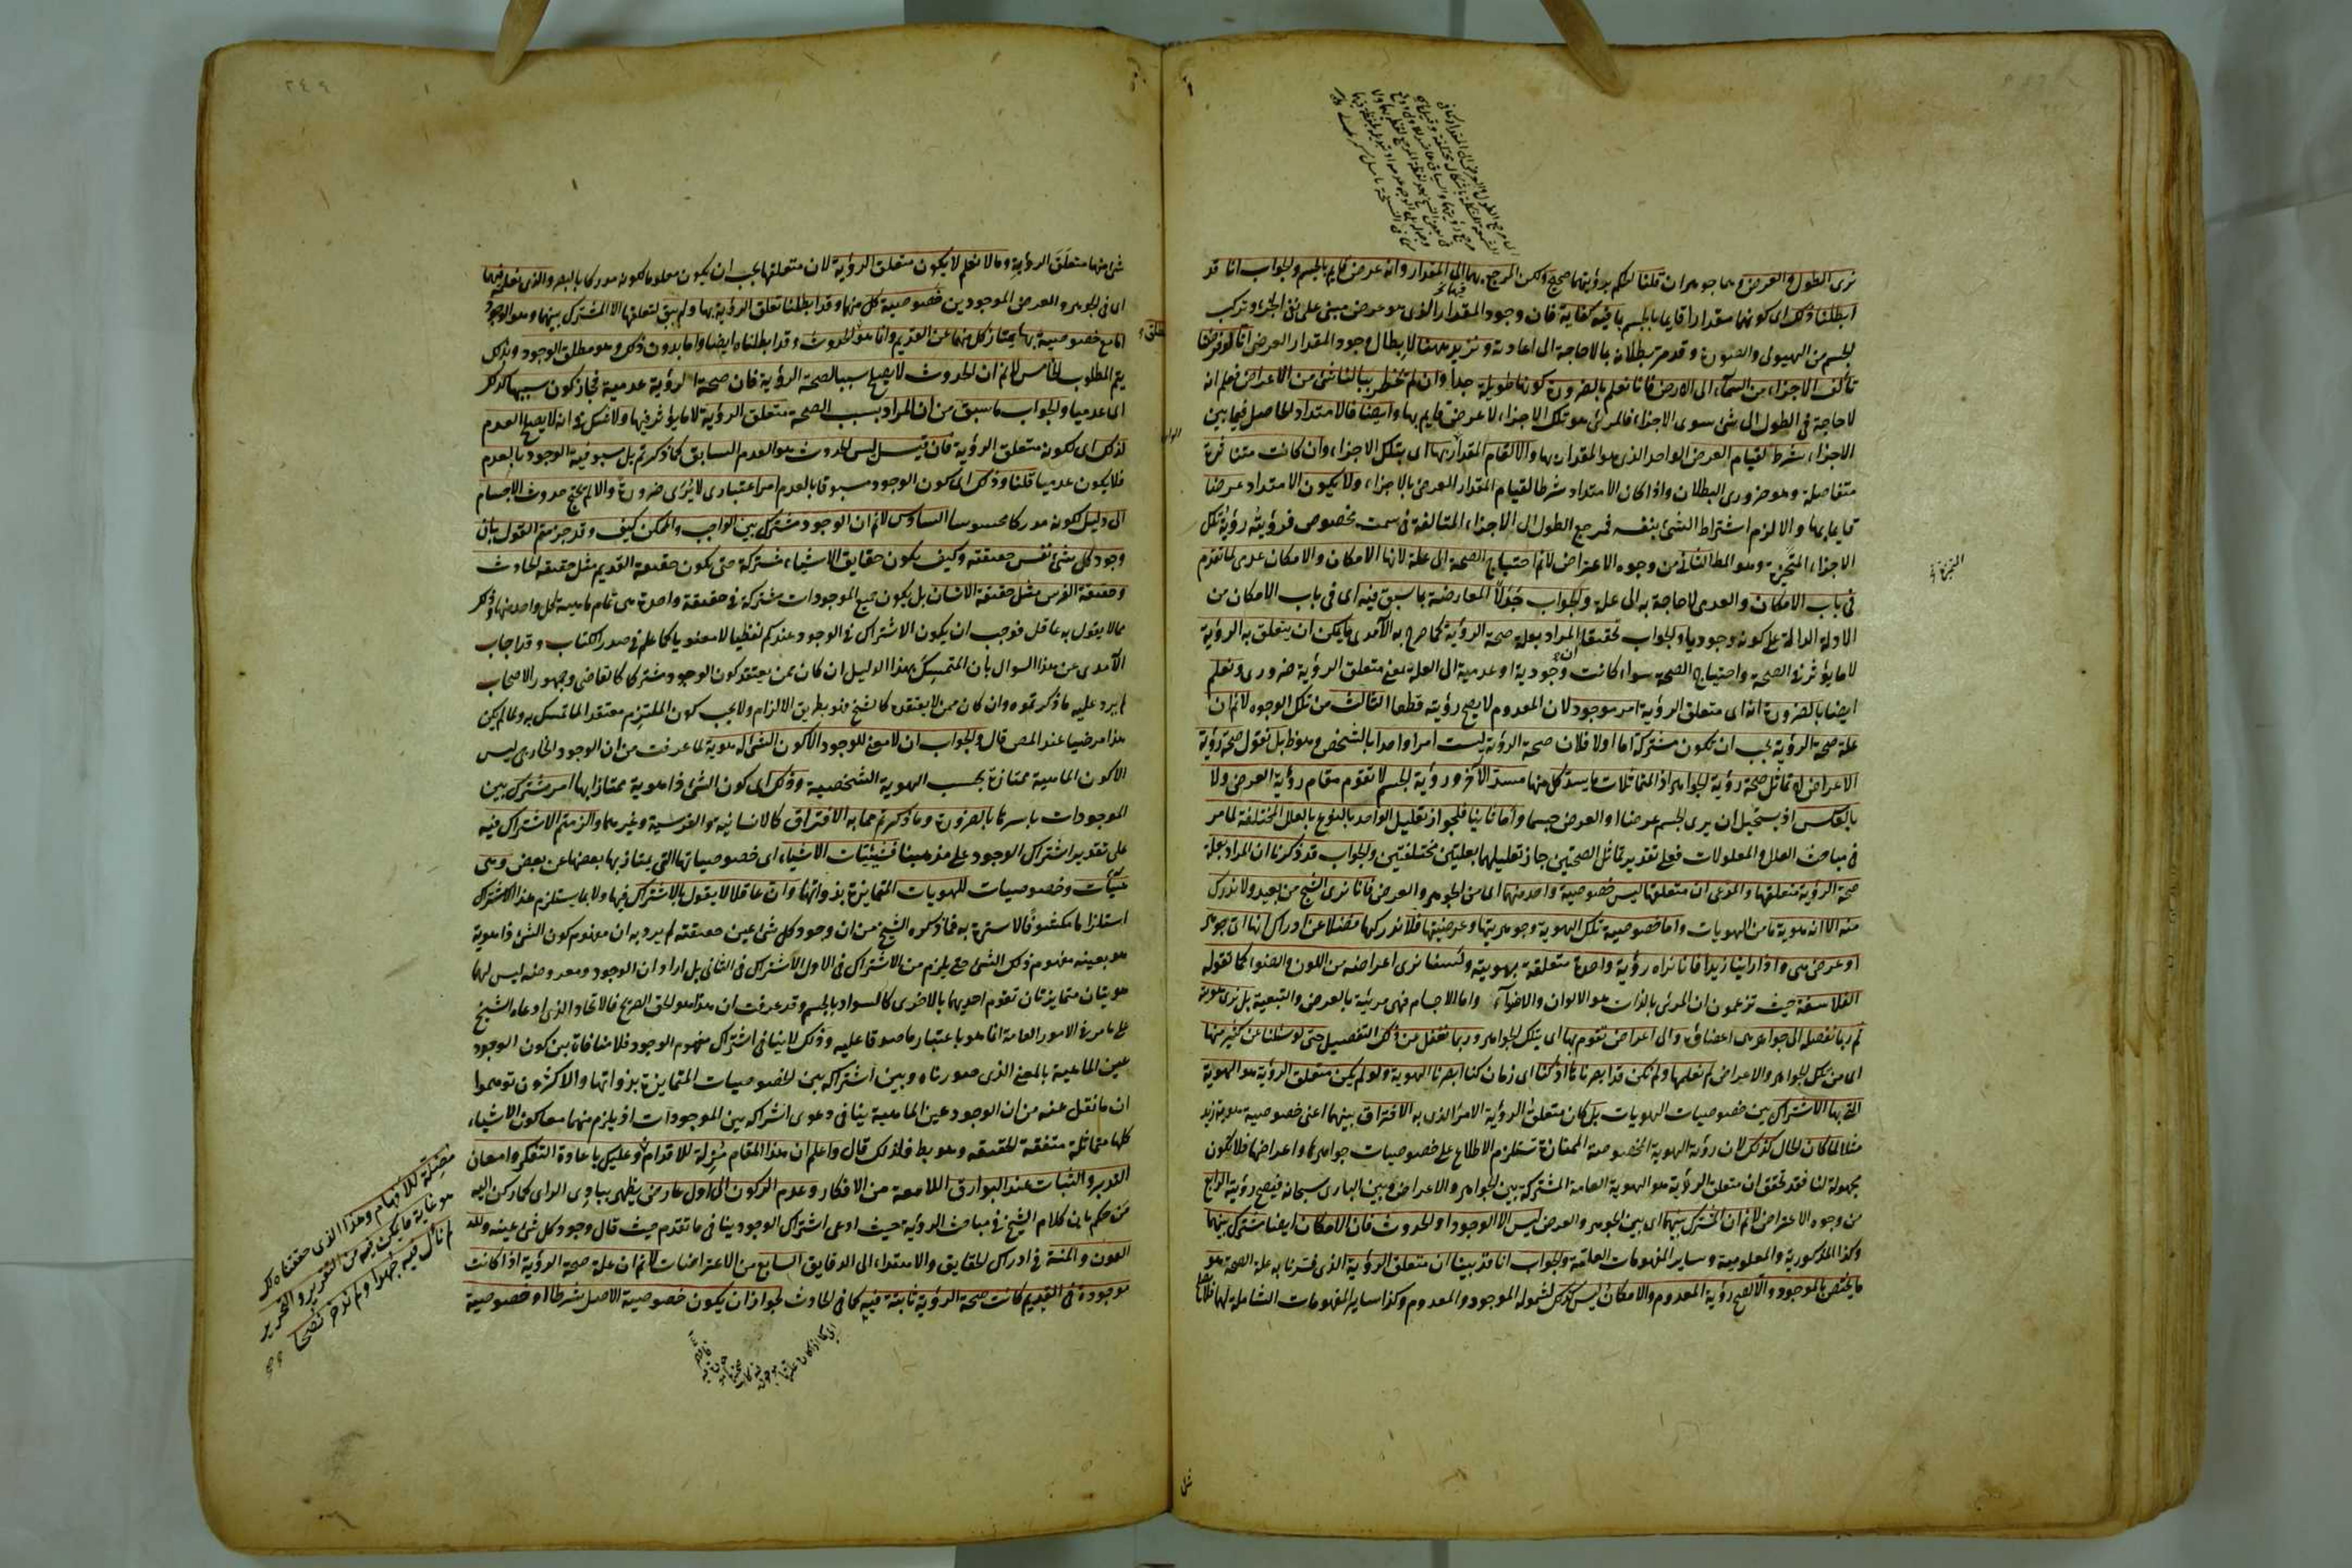 نرى الطول والعرض وهما جوهران قلنا الحكم برؤيتهما صحيح ولكن المرجع بهما الى المقدار وانه عرض قايم بالجسم والجواب انا قد
ابطلنا ذلك اى كونهما مقدارا قايما بالجسم بما فيه كفاية فان وجود المقدار الذى هو عرض مبنى على نفى الجزء وتركب
الجسم من الهيولى والصورة وقد مر بطلانه بالاحاجة الى اعادته ونزيد ههنا لابطال وجود المقدار العرضى انا لو فرضنا
تألف الاجزاء من السماء الى الارض فانا نعلم بالضرورة كونها طويلة جدا وان لم يخطر ببالنا شئ من الاعراض فعلم انه
لا حاجة فى الطول الى شئ سوى الاجزاء فالمرئى هو تلك الاجزاء لا عرض قايم بها وايضا فالامتداد الحاصل فيما بين
الاجزاء شرط لقيام العرض الواحد الذى هو المقدار بها والا لقام المقدار بها اى بتلك الاجزاء وان كانت متنافرة
متفاصلة وهو ضرورى البطلان واذا كان الامتداد شرطا لقيام المقدار العرضى بالاجزاء ولا يكون الامتداد عرضا
قايما بها والا لزم اشتراط الشئ بنفسه فمرجع الطول الى الاجزاء المتألفة فى سمت مخصوص فرؤيته رؤية تلك
الاجزاء المتحيزة وهو المط الثانى من وجوه الاعتراض لا نم احتياج الصحة الى علة لانها الامكان والامكان عدمى لما تقدم
فى باب الامكان والعدمى لا حاجة به الى علة والجواب جدلا المعارضة بما سبق فيه اى فى باب الامكان من
الادلة الدالة على كونه وجوديا والجواب تحقيقا المراد بعلة صحة الرؤية كما صرح به الآمدى ما يمكن ان يتعلق به الرؤية
لا ما يؤثر فى الصحة واحتياج الصحة سواء كانت وجودية او عدمية الى العلة بمعنى متعلق الرؤية ضرورى ونعلم
ايضا بالضرورة انه اى متعلق الرؤية امر موجود لان المعدوم لا يصح رؤيته قطعا الثالث من تلك الوجوه لا نم ان
علة صحة الرؤية يجب ان تكون مشتركة اما اولا فلان صحة الرؤية ليست امرا واحدا بالشخص وهو ظ بل نقول صحة رؤية
الاعراض لا تماثل صحة رؤية الجواهر اذ المتماثلات ما يسد كل منهما مسد الآخر ورؤية الجسم لا تقوم مقام رؤية العرض ولا
بالعكس اذ يستحيل ان يرى الجسم عرضا او العرض جسما واما ثانيا فلجواز تعليل الواحد بالنوع بالعلل المختلفة لما مر
فى مباحث العلل والمعلولات فعلى تقدير تماثل الصحتين جاز تعليلهما بعلتين مختلفتين والجواب قد ذكرنا ان المراد بعلة
صحة الرؤية متعلقها والمدعى ان متعلقها ليس خصوصية واحد منهما اى من الجوهر والعرض فانا نرى الشبح من بعيد ولا ندرك
منه الا انه هوية ما من الهويات واما خصوصية تلك الهوية وجوهريتها وعرضيتها فلا ندركها فضلا عن ادراك انها اى جوهر
او عرض هى واذا راينا زيدا فانا نراه رؤية واحدة متعلقة بهويته ولسنا نرى اعراضه من اللون والضوء كما تقوله
الفلاسفة حيث تزعمون ان المرئى بالذات هو الالوان والاضواء واما الاجسام فهى مرئية بالعرض والتبعية بل نرى هويته
ثم ربما نفصله الى جواهر هى اعضاؤه والى اعراض تقوم بها اى بتلك الجواهر وربما نغفل عن ذلك التفصيل حتى لو سئلنا عن كثير منها
اى من تلك الجواهر والاعراض لم نعلمها ولم نكن قد ابصرناها اذ كنا اى زمان كنا ابصرنا الهوية ولو لم يكن متعلق الرؤية هو الهوية
التى بها الاشتراك بين خصوصيات الهويات بل كان متعلق الرؤية الامر الذى به الافتراق بينهما اعنى خصوصية هوية زيد
مثلا لما كان الحال كذلك لان رؤية الهوية المخصوصة الممتازة تستلزم الاطلاع على خصوصيات جواهرها واعراضها فلا يكون
مجهولة لنا فقد تحقق ان متعلق الرؤية هو الهوية العامة المشتركة بين الجواهر والاعراض وبين البارى سبحانه فيصح رؤيته الرابع
من وجوه الاعتراض لا نم ان المشترك بينهما اى بين الجوهر والعرض ليس الا الوجود او الحدوث فان الامكان ايضا مشترك بينهما
وكذا المذكورية والمعلومية وساير المفهومات العامة والجواب انا قد بينا ان متعلق الرؤية الذى فسرنا به علة الصحة هو
ما يختص بالموجود والا لصح رؤية المعدوم والامكان ليس كذلك لشموله الموجود والمعدوم وكذا ساير المفهومات الشاملة لهما فلا
شئ منها متعلق الرؤية وما لا نعلم لا يكون متعلق الرؤية لان متعلقها يجب ان يكون معلوما لكونه مدركا بالبصر والذى نعلمه فيهما
اى فى الجوهر والعرض الموجودين خصوصية كل منهما وقد ابطلنا تعلق الرؤية بها ولم يبق لتعلقها الا المشترك بينهما وهو الوجود
اما مع خصوصية بها يمتاز كل منهما عن القديم وانما هو الحدوث وقد ابطلناه ايضا واما بدون ذلك وهو مطلق الوجود وبذلك
يتم المطلوب الخامس لا نم ان الحدوث لا يصلح سببا لصحة الرؤية فان صحة الرؤية عدمية فجاز كون سببها كذلك
اى عدميا والجواب ما سبق من ان المراد بسبب الصحة متعلق الرؤية لا ما يؤثر فيها ولا شك فى انه لا يصلح العدم
لذلك اى لكونه متعلق الرؤية فان قيل ليس الحدوث هو العدم السابق كما ذكرتم بل مسبوقية الوجود بالعدم
فلا يكون عدميا قلنا وذلك اى كون الوجود مسبوقا بالعدم امر اعتبارى لا يرى ضرورة والا لم يحتج حدوث الاجسام
الى دليل لكونه مدركا محسوسا السادس لا نم ان الوجود مشترك بين الواجب والممكن كيف وقد جزمتم القول بان
وجود كل شئ نفس حقيقته وكيف يكون حقايق الاشياء مشتركة حتى يكون حقيقة القديم مثل حقيقة الحادث
وحقيقة الفرس مثل حقيقة الانسان بل يكون جميع الموجودات مشتركة فى حقيقة واحدة هى تمام ماهية كل واحد منها وذلك
مما لا يقول به عاقل فوجب ان يكون الاشتراك فى الوجود عندكم لفظيا لا معنويا كما علم فى صدر الكتاب وقد اجاب
الآمدى عن هذا السوال بان المتمسك بهذا الدليل ان كان ممن يعتقد كون الوجود مشتركا كالقاضى وجمهور الاصحاب
لم يرد عليه ما ذكرتموه وان كان ممن لا يعتقده كالشيخ فهو بطريق الالزام ولا يجب كون الملتزم معتقدا لما تمسك به ولما لم يكن
هذا مرضيا عند المص قال والجواب ان لا معنى للوجود الا كون الشئ له هوية لما عرفت من ان الوجود الخارجى ليس
الا كون الماهية ممتازة بحسب الهوية الشخصية وذلك اى كون الشئ ذا هوية ممتازا بها امر مشترك بين
الموجودات باسرها بالضرورة وما ذكرتم مما به الافتراق كالانسانية والفرسية وغيرهما والزمتم الاشتراك فيه
على تقدير اشتراك الوجود على مذهبنا فشيئيات الاشياء اى خصوصياتها التى يمتاز بها بعضها عن بعض وهى
هيآت وخصوصيات للهويات المتمايزة بذواتها وان عاقلا لا يقول بالاشتراك فيها ولا بما يستلزم هذا الاشتراك
استلزاما مكشوفا لا سترة به فما ذكره الشيخ من ان وجود كل شئ عين حقيقته لم يرد به ان مفهوم كون الشئ ذا هوية
هو بعينه مفهوم ذلك الشئ حتى يلزم من الاشتراك فى الاول الاشتراك فى الثانى بل اراد ان الوجود ومعروضه ليس لهما
هويتان متمايزتان تقوم احديهما بالاخرى كالسواد بالجسم وقد عرفت ان هذا هو الحق الصريح فالاتحاد الذى ادعاه الشيخ
على ما مر فى الامور العامة انما هو باعتبار ما صدقا عليه وذلك لا ينافى اشتراك مفهوم الوجود فلا منافاة بين كون الوجود
عين الماهية بالمعنى الذى صورناه وبين اشتراكه بين الخصوصيات المتمايزة بذواتها والاكثرون توهموا
ان ما نقل عنه من ان الوجود عين الماهية ينافى دعوى اشتراكه بين الموجودات اذ يلزم منهما معا كون الاشياء
كلها متماثلة متفقة الحقيقة وهو بط ولذلك قال واعلم ان هذا المقام مزلة للاقدام وعليك باعادة التفكر وامعان
التدبر والثبات عند البوارق اللامعة من الافكار وعدم الركون الى اول عارض يظهر ببادى الراى كما ركن اليه
من حكم بان كلام الشيخ فى مباحث الرؤية حيث ادعى اشتراك الوجود ينافى ما تقدم حيث قال وجود كل شئ عينه ولله
العون والمنة فى ادراك الحقايق والاهتداء الى الدقايق السابع من الاعتراضات لا نم ان علة صحة الرؤية اذا كانت
موجودة فى القديم كانت صحة الرؤية ثابتة فيه كما فى الحادث لجواز ان يكون خصوصية الاصل شرطا او خصوصية
مضلة للافهام وهذا الذى حققناه لك
هو غاية ما يمكن فيه من التقرير والتحرير
لم نأل فيه جهدا ولم ندخر نصحا